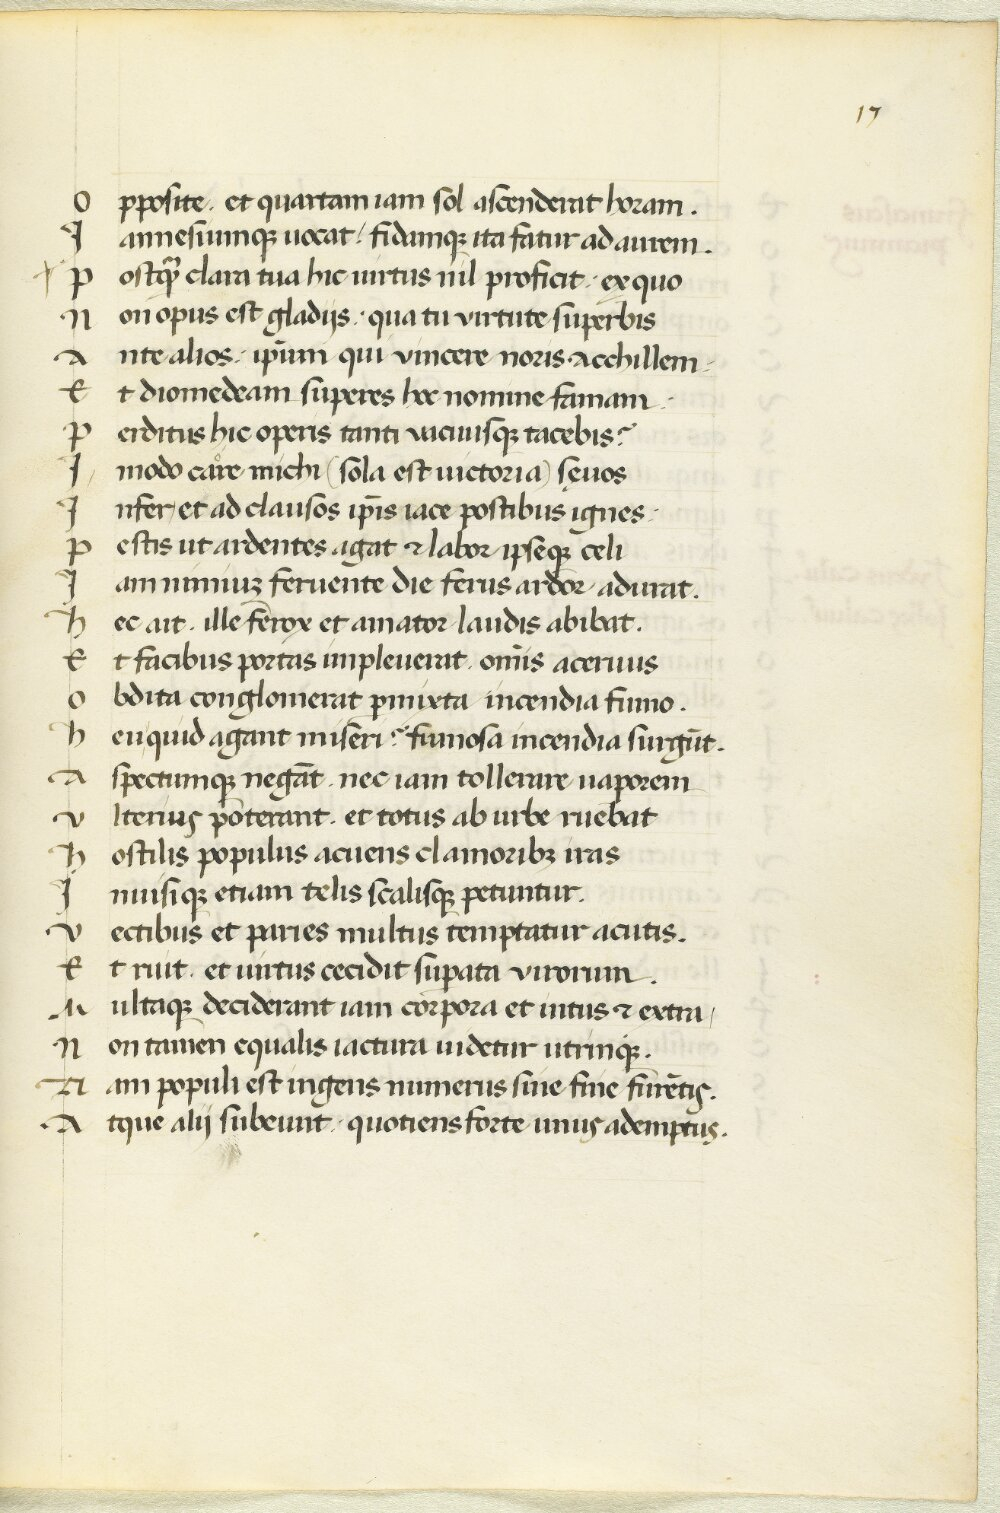 17
Opposite. et quartam iam sol ascenderat horam.
Iannesiumq; uocat / fidamq; ita fatur ad aurem.
Postq̃ clara tua hic uirtus nil proficit. ex quo
Non opus est gladijs. qua tu virtute superbis
Ante alios. ip̄um qui vincere noris acchillem.
Et diomedeam superes hec nomine famam.
Perditus hic operis tanti vacuusq; tacebis?
I modo care michi (sola est uictoria) sęuos
Infer, et ad clausos ip̄is iace postibus ignes.
Pestis ut ardentes agat & labor ipseq; celi
Iam nimiuz feruente die ferus ardor adurat.
Hec ait. ille ferox et amator laudis abibat.
Et facibus portas impleuerat. om̄is aceruus
Obdita conglomerat pmixta incendia fumo.
Heu quid agant miseri? fumosa incendia surgūt.
Aspectumq; negāt. nec iam tollerare uaporem
Vlterius poterant. et totus ab urbe ruebat
Hostilis populus acuens clamoribz iras
Inuisiq; etiam telis scalisq; petuntur.
Vectibus et paries multus temptatur acutis.
Et ruit. et uirtus cecidit supata virorum.
Multaq; deciderant iam corpora et intus & extra /
Non tamen equalis iactura uidetur utrinq;.
Nam populi est ingens numerus sine fine furētis.
Atque alij subeunt. quotiens forte unus ademptus.